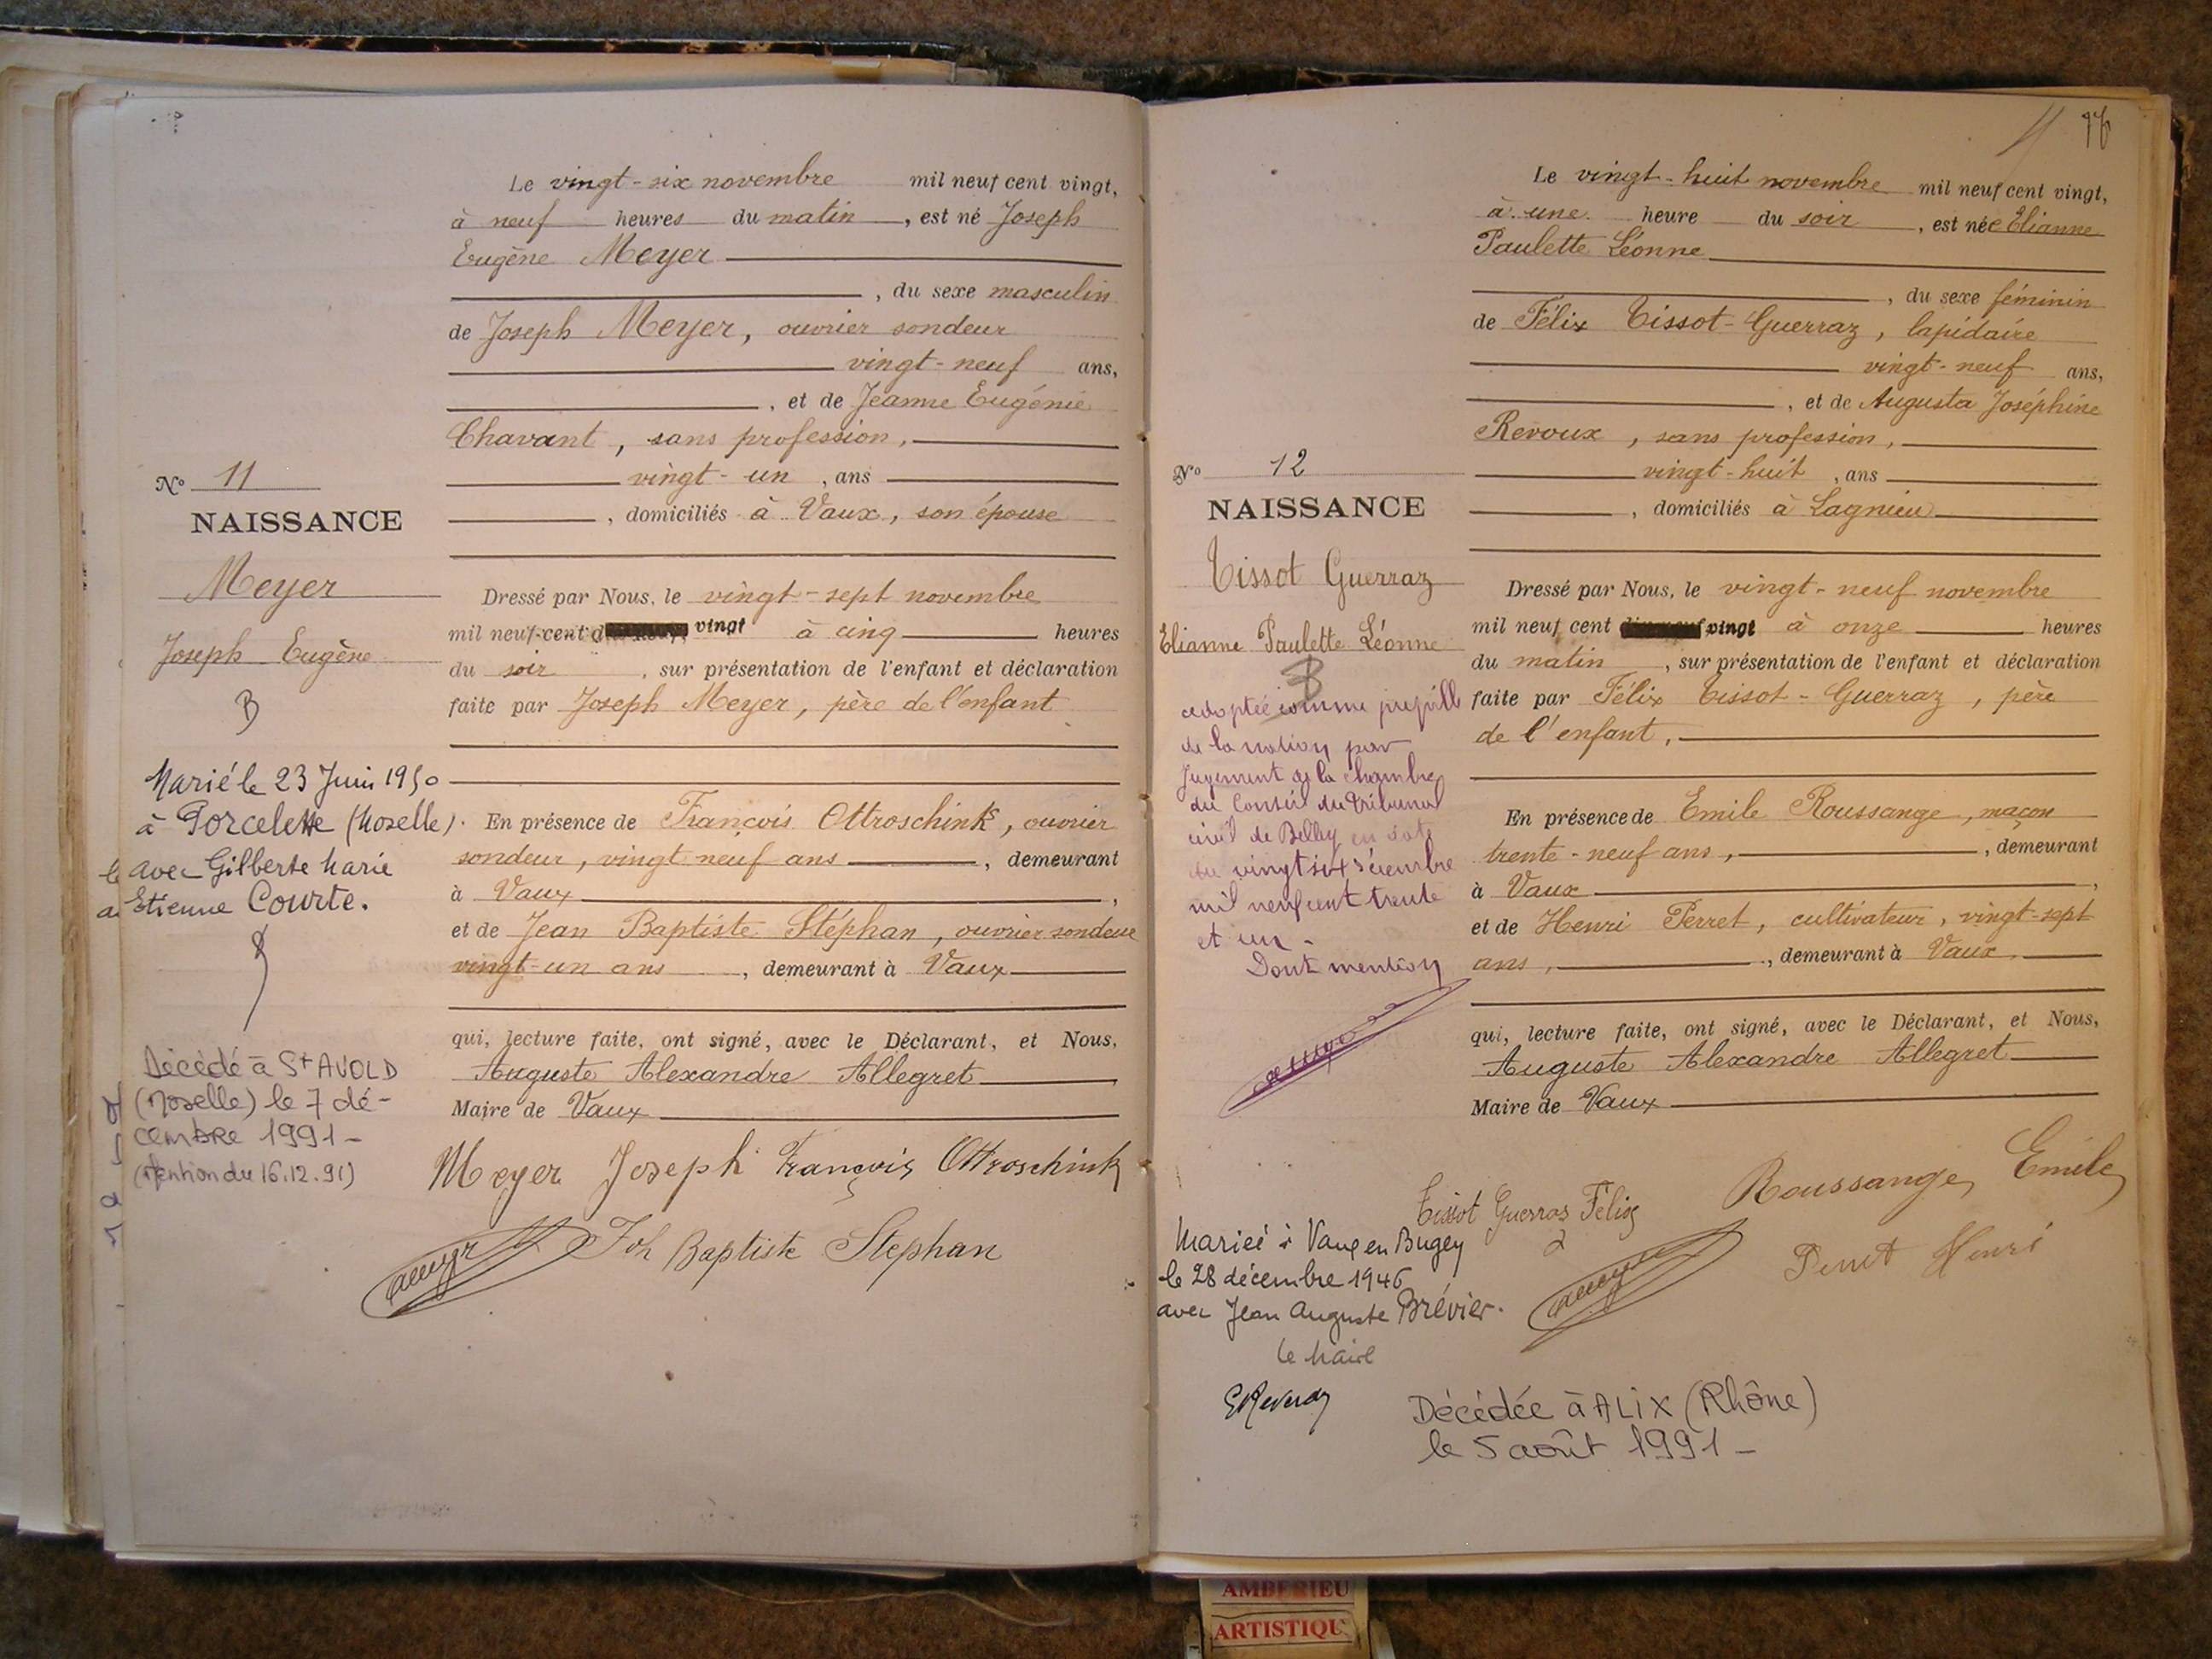 Le vingt-six novembre mil neuf cent vingt,
à neuf heures du matin, est né Joseph
Eugène Meyer
, du sexe masculin
de Joseph Meyer, ouvrier sondeur
vingt-neuf ans,
, et de Jeanne Eugénie
Chavant, sans profession,
vingt-un, ans
, domiciliés à Vaux, son épouse
Dressé par Nous, le vingt-sept novembre
mil neuf cent vingt à cinq heures
du soir, sur présentation de l'enfant et déclaration
faite par Joseph Meyer, père de l'enfant
En présence de François Ottroschink, ouvrier
sondeur, vingt neuf ans, demeurant
à Vaux,
et de Jean Baptiste Stéphan, ouvrier sondeur
vingt-un ans, demeurant à Vaux
qui, lecture faite, ont signé, avec le Déclarant, et Nous,
Auguste Alexandre Allegret
Maire de Vaux
Meyer Joseph François Ottroschink
Joh Baptiste Stephan
No 11
NAISSANCE
Meyer
Joseph Eugène
B
Marié le 23 Juin 1950
à Porcelette (Moselle).
avec Gilberte Marie
Etienne Courte.
Décédé à St AVOLD
(Moselle) le 7 dé-
cembre 1991-
(Mention du 16.12.91)
76
Le vingt-huit novembre mil neuf cent vingt,
à une heure du soir, est née Elianne
Paulette Léonne
, du sexe féminin
de Félix Tissot-Guerraz, lapidaire
vingt-neuf ans,
, et de Augusta Joséphine
Revoux, sans profession,
vingt-huit, ans
, domiciliés à Lagnieu
Dressé par Nous, le vingt-neuf novembre
mil neuf cent vingt à onze heures
du matin, sur présentation de l'enfant et déclaration
faite par Félix Tissot-Guerraz, père
de l'enfant,
En présence de Emile Roussange, maçon
trente-neuf ans, demeurant
à Vaux,
et de Henri Perret, cultivateur, vingt-sept
ans, demeurant à Vaux,
qui, lecture faite, ont signé, avec le Déclarant, et Nous,
Auguste Alexandre Allegret
Maire de Vaux
Roussange Emile
Tissot Guerras Félix
Perret Henri
No 12
NAISSANCE
Tissot Guerraz
Elianne Paulette Léonne
B
adoptée comme pupille
de la nation par
Jugement de la chambre
du Conseil du Tribunal
civil de Belley en date
du vingt six décembre
mil neuf cent trente
et un.
Dont mention
Mariée à Vaux en Bugey
le 28 décembre 1946
avec Jean Auguste Brévier.
le Maire
Décédée à ALIX (Rhône)
le 5 août 1991-
AMBERIEU
ARTISTIQU